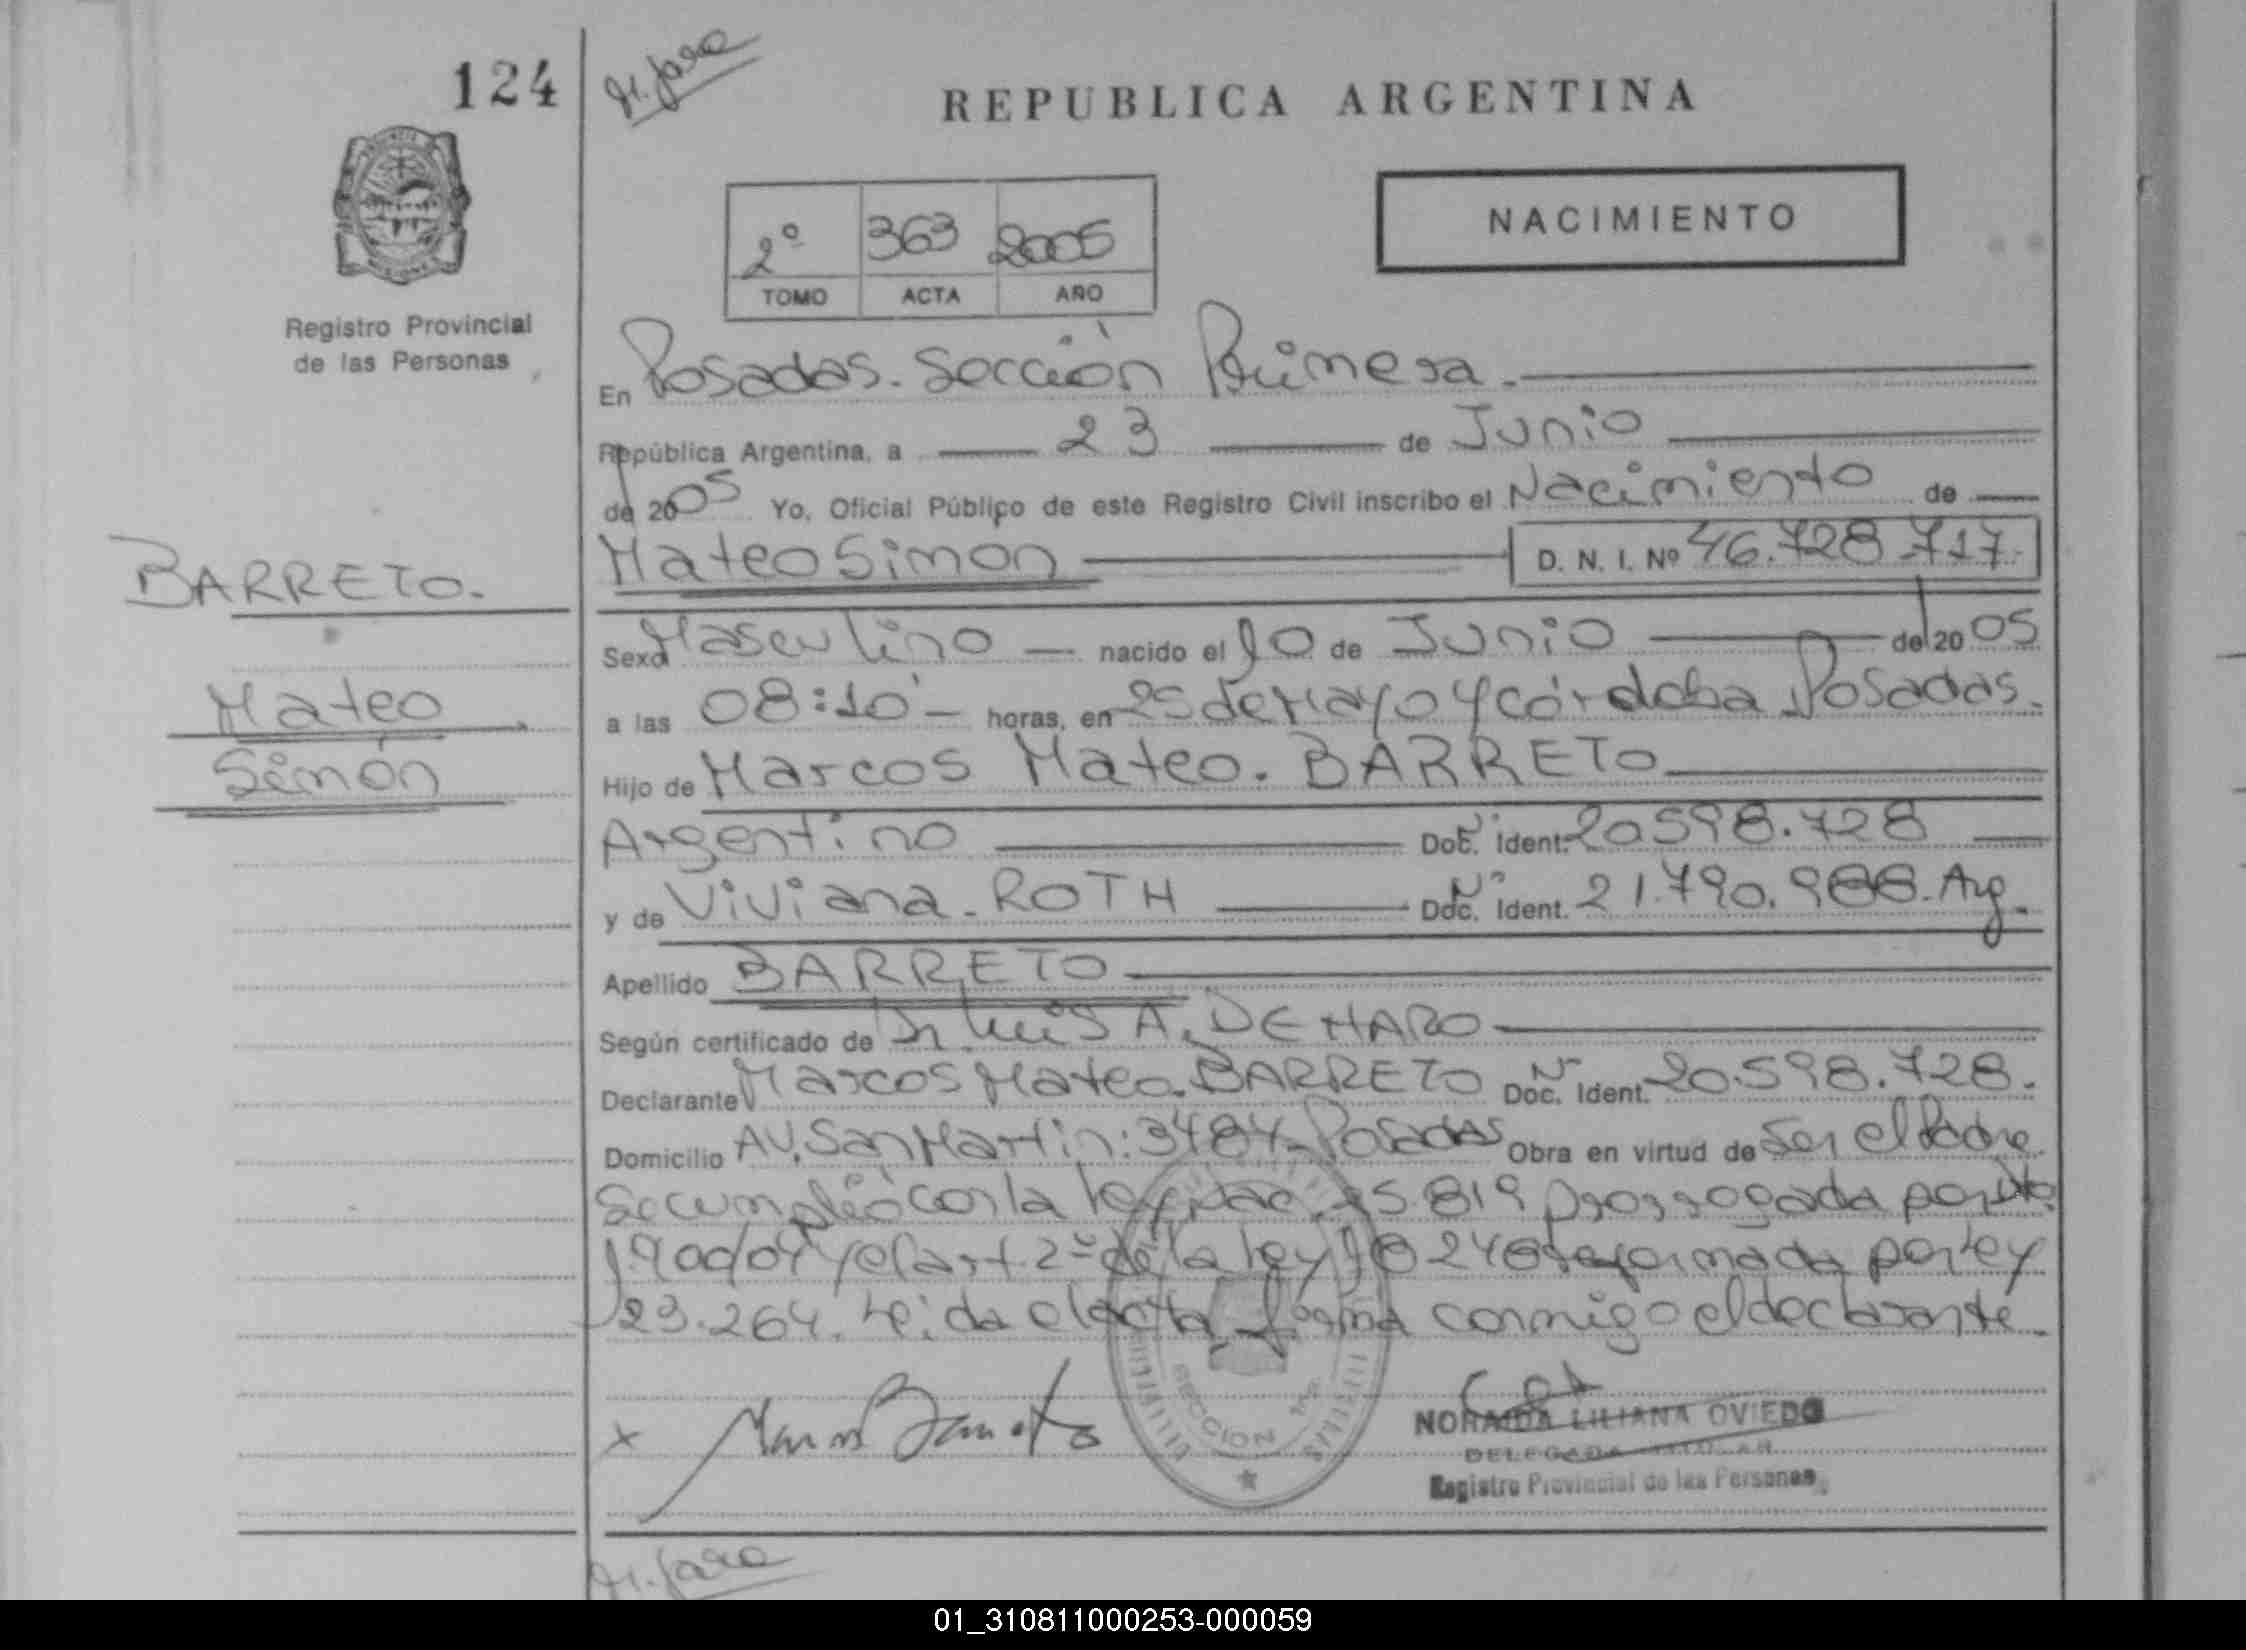 124
H. Jara
REPUBLICA ARGENTINA
NACIMIENTO
2º 363 2005
TOMO ACTA AÑO
Registro Provincial
de las Personas
En Posadas. Sección Primera.
República Argentina, a 23 de Junio
de 2005 Yo, Oficial Público de este Registro Civil inscribo el Nacimiento de
Mateo Simon D. N. I. Nº 46.728.717.
BARRETO.
Mateo
Simón
Sexo Masculino nacido el 10 de Junio de 2005
a las 08:10 horas, en 25 de Mayo y Córdoba Posadas.
Hijo de Marcos Mateo. BARRETO
Argentino Doc. Ident. Nº 20.598.728
y de Viviana. ROTH Doc. Ident. Nº 21.790.988. Arg.
Apellido BARRETO
Según certificado de Dr. Luis A. DE HARO
Declarante Marcos Mateo. BARRETO Doc. Ident. Nº 20.598.728.
Domicilio AV. San Martin: 3484 - Posadas Obra en virtud de Ser el Padre
Se cumplió con la ley Nac. 25.819 prorrogada por Dto.
1900/04 y el art 2º de la ley 18248 reformada por ley
23.264. Leida el acta firma conmigo el declarante.
x Marcos Barreto
SECCION 1ra.
NORAIDA LILIANA OVIEDO
DELEGADA TITULAR
Registro Provincial de las Personas
H. Jara
01_310811000253-000059